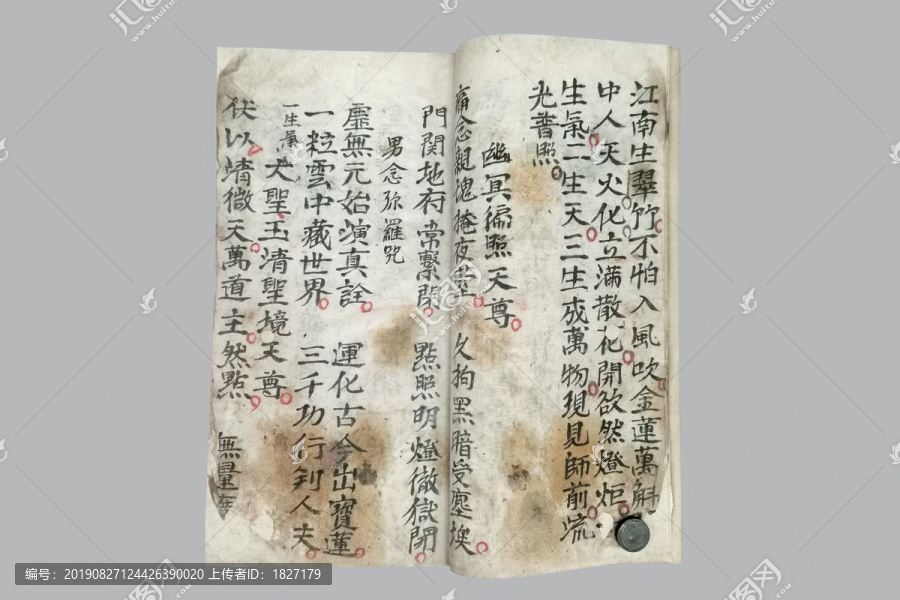 江南生翠竹不怕入風吹金蓮萬斛
中人天火化立滿散花開欲然燈炬
生氣二生天三生成萬物現見師前流
光普照
幽冥徧照天尊
痛念親魂掩夜臺 久拘黑暗受塵埃
門関地府常繫閉 點照明燈徹獄開
男念弥羅咒
虛無元始演真詮 運化古今出寶蓮
一粒雲中藏世界 三千功行到人夫
一生氣 大聖玉清聖境天尊
伏以清微天萬道主然點 無量
汇图网
www.huitu.com
编号：20190827124426390020 上传者ID：1827179